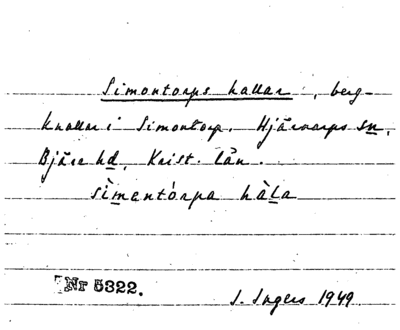 Simontorps hallar, berg-
knallar i Simontorp. Hjärnarps sn,
Bjäre hd, Krist. län.
sìmantórpa hàla
Nr 5322.
I. Ingers 1949